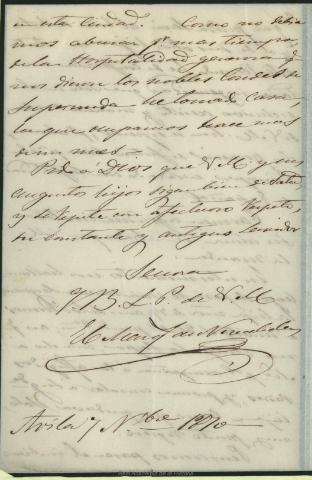 en esta Ciudad. Como no debia
mos abusar pr. mas tiempo
de la Hospitalidad generosa q.
nos dieron los nobles Condes de
Superunda he tomado casa,
la que ocupamos hace mas
de un mes.
Pido a Dios que V.M. y sus
augustos hijos sigan bien de salud
y se repite con afectuoso respeto,
su constante y antiguo servidor
Señora
Q B. L P. de V.M
El Mar
Avila 7 Nbre 1870